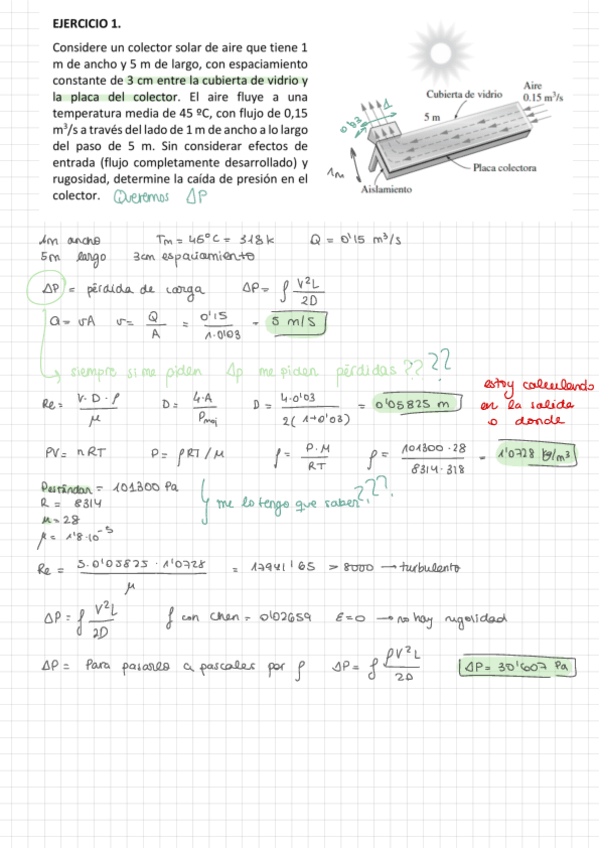 EJERCICIO 1.
Considere un colector solar de aire que tiene 1
m de ancho y 5 m de largo, con espaciamiento
constante de 3 cm entre la cubierta de vidrio y
la placa del colector. El aire fluye a una
temperatura media de 45 ºC, con flujo de 0,15
m³/s a través del lado de 1 m de ancho a lo largo
del paso de 5 m. Sin considerar efectos de
entrada (flujo completamente desarrollado) y
rugosidad, determine la caída de presión en el
colector. Queremos ΔP
Cubierta de vidrio
Aire
0.15 m³/s
5 m
Placa colectora
Aislamiento
1m
0'03
1
1m ancho Tm = 45ºC = 318k Q = 0'15 m³/s
5m largo 3cm espaciamiento
ΔP = pérdida de carga ΔP = f V²L / 2D
Q = vA v = Q / A = 0'15 / 1·0'03 = 5 m/s
siempre si me piden Δp me piden pérdidas ?? ??
Re = V·D·ρ / μ D = 4·A / Pmoj D = 4·0'03 / 2(1+0'03) = 0'05825 m
estoy calculando
en la salida
o donde
PV = nRT P = ρRT/M ρ = P·M / RT ρ = 101300·28 / 8314·318 = 1'0728 kg/m³
Pestándar = 101300 Pa
me lo tengo que saber? ???
R = 8314
M = 28
μ = 1'8·10⁻⁵
Re = 5·0'05825·1'0728 / μ = 17941'65 > 8000 → turbulento
ΔP = f V²L / 2D f con Chen = 0'02659 E=0 → no hay rugosidad
ΔP = Para pasarlo a pascales por ρ ΔP = f ρV²L / 2D ΔP = 30'607 Pa